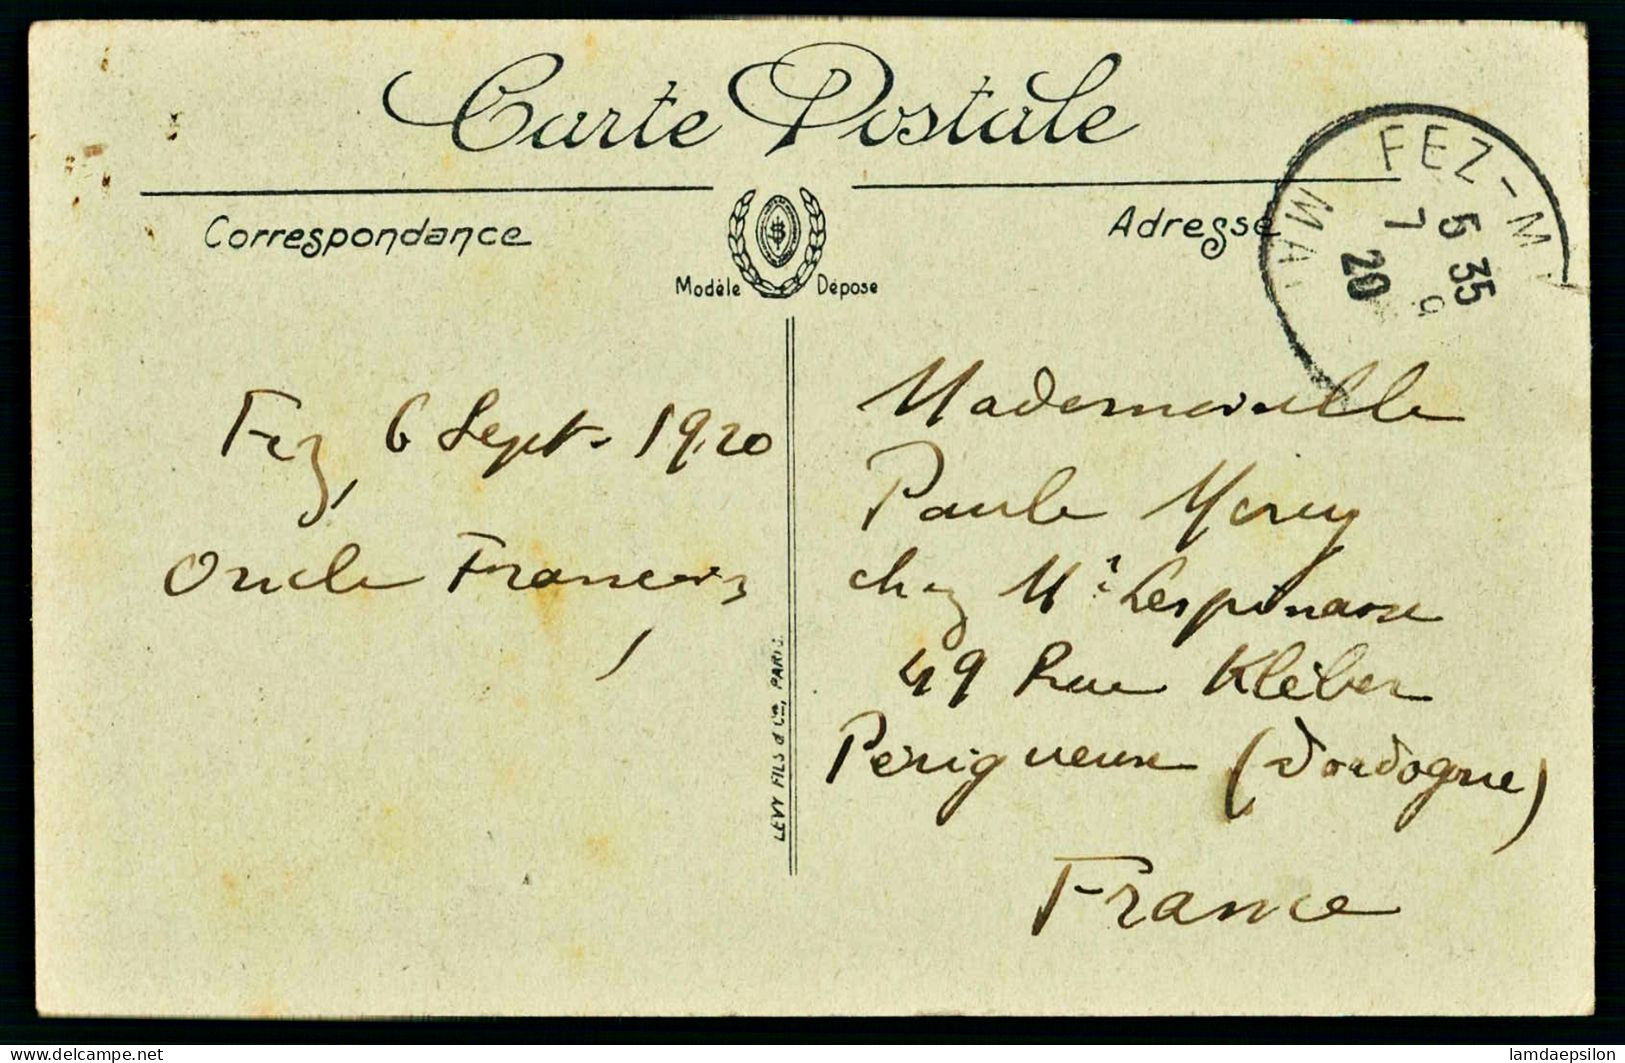 Carte Postale
Correspondance
Adresse
Modèle Déposé
FEZ-M
MA
5 35
7 9
20
Fez, 6 Sept. 1920
Oncle François
LEVY FILS & Cie, PARIS
Mademoiselle
Paule
chez Mr Lespinasse
49 Rue Kléber
Périgueux (Dordogne)
France
lamdaepsilon